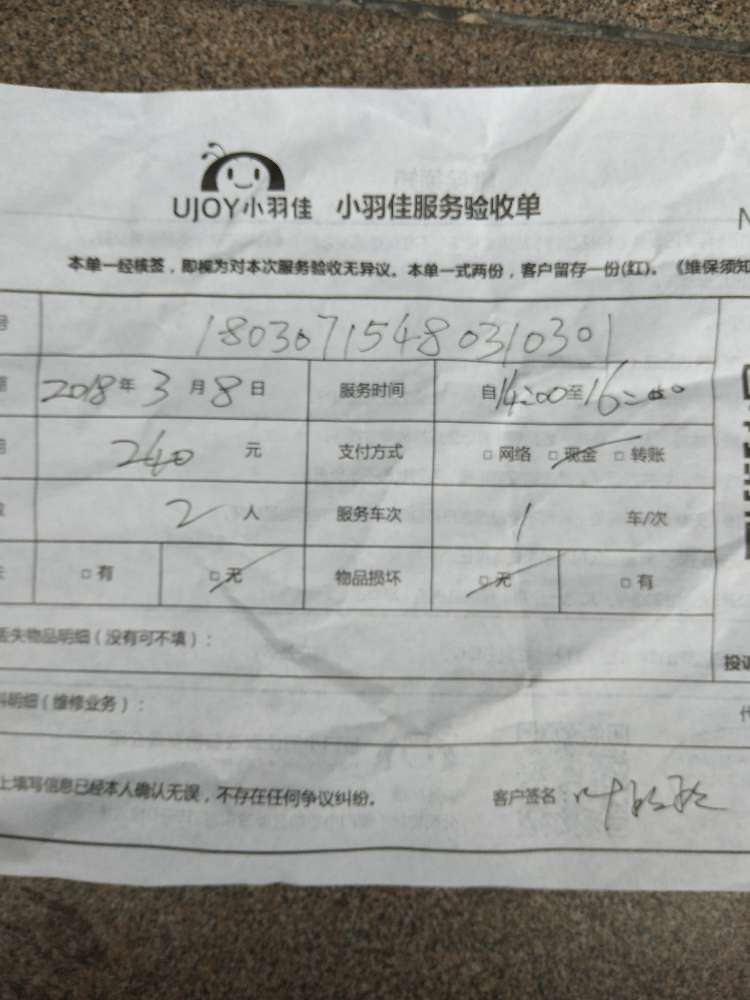 UJOY小羽佳 小羽佳服务验收单
N
本单一经核签，即视为对本次服务验收无异议。本单一式两份，客户留存一份(红)。《维保须知
号 18030715480310301
2018年3月8日 服务时间 自14:00至16:00
240 元 支付方式 □ 网络 □ 现金 □ 转账
2 人 服务车次 1 车/次
□ 有 □ 无 物品损坏 □ 无 □ 有
丢失物品明细（没有可不填）：
投诉
料明细（维修业务）：
上填写信息已经本人确认无误，不存在任何争议纠纷。 客户签名：叶